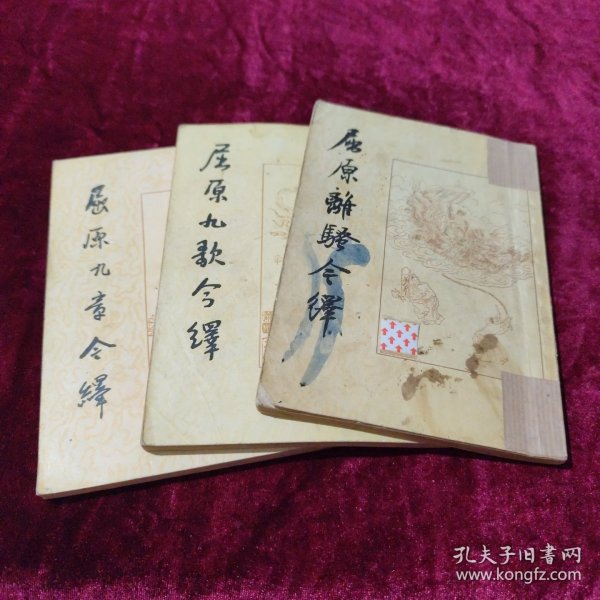 屈原九章今繹
屈原九歌今繹
屈原離騷今繹
孔夫子旧书网
www.kongfz.com